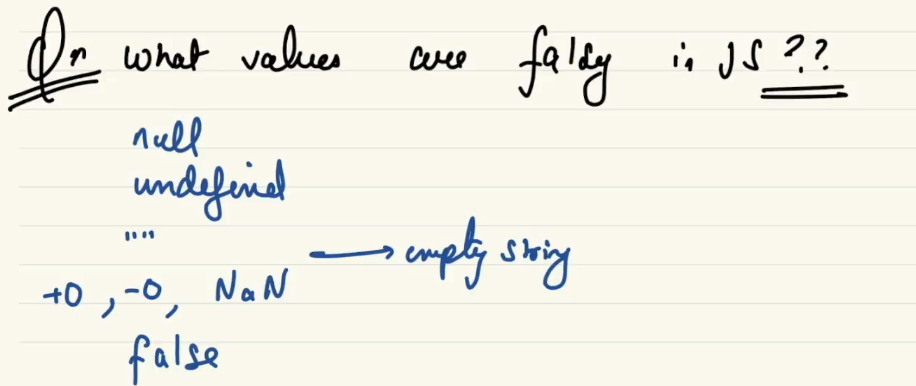 Qn what values are falsy in JS ??
null
undefined
"" → empty string
+0, -0, NaN
false